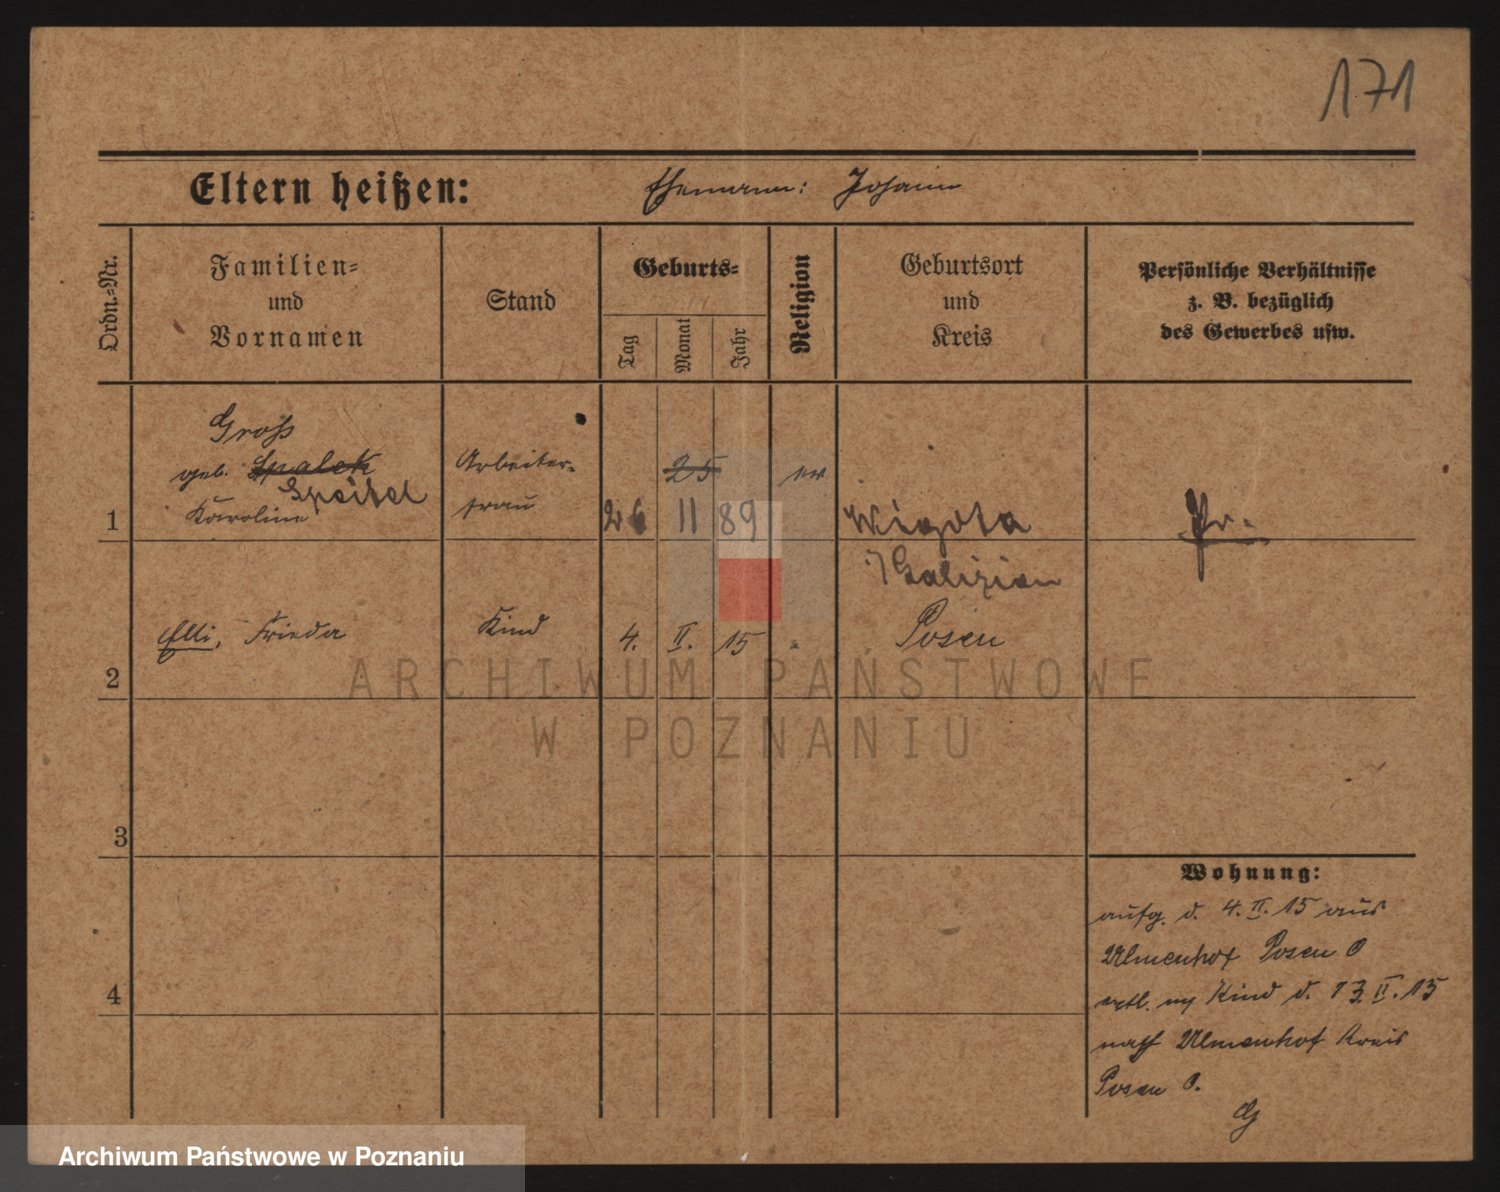 171
Eltern heißen: Ehemann: Johann
Ordn.-Nr.
Familien-
und
Vornamen
Stand
Geburts-
Tag
Monat
Jahr
Religion
Geburtsort
und
Kreis
Persönliche Verhältnisse
z. B. bezüglich
des Gewerbes usw.
1
Groß
geb. Spalek
Speichel
Karoline
Arbeiter-
frau
25
26 11 89
ev
Wigota
i/Galizien
Pr.
2
Elli, Frieda
Kind
4. II. 15 "
Posen
3
4
Wohnung:
aufg. d. 4. II. 15 aus
Ulmenhof Posen O
entl. m/ Kind d. 13. II. 15
nach Ulmenhof Kreis
Posen O.
ARCHIWUM PAŃSTWOWE
W POZNANIU
Archiwum Państwowe w Poznaniu